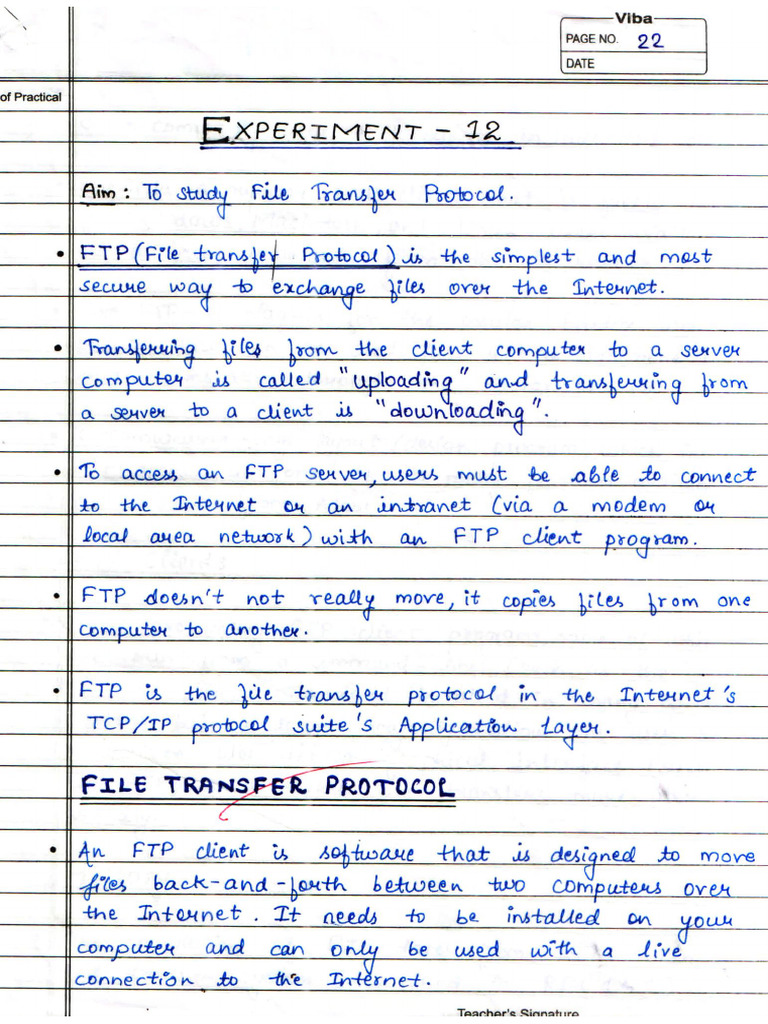 Viba
PAGE NO. 22
DATE
of Practical
EXPERIMENT - 12
Aim: To study File Transfer Protocol.
• FTP (File transfer Protocol) is the simplest and most
secure way to exchange files over the Internet.
• Transferring files from the client computer to a server
computer is called "uploading" and transferring from
a server to a client is "downloading".
• To access an FTP server, users must be able to connect
to the Internet or an intranet (via a modem or
local area network) with an FTP client program.
• FTP doesn't not really move, it copies files from one
computer to another.
• FTP is the file transfer protocol in the Internet's
TCP/IP protocol suite's Application Layer.
FILE TRANSFER PROTOCOL
• An FTP client is software that is designed to move
files back-and-forth between two computers over
the Internet. It needs to be installed on your
computer and can only be used with a live
connection to the Internet.
Teacher's Signature